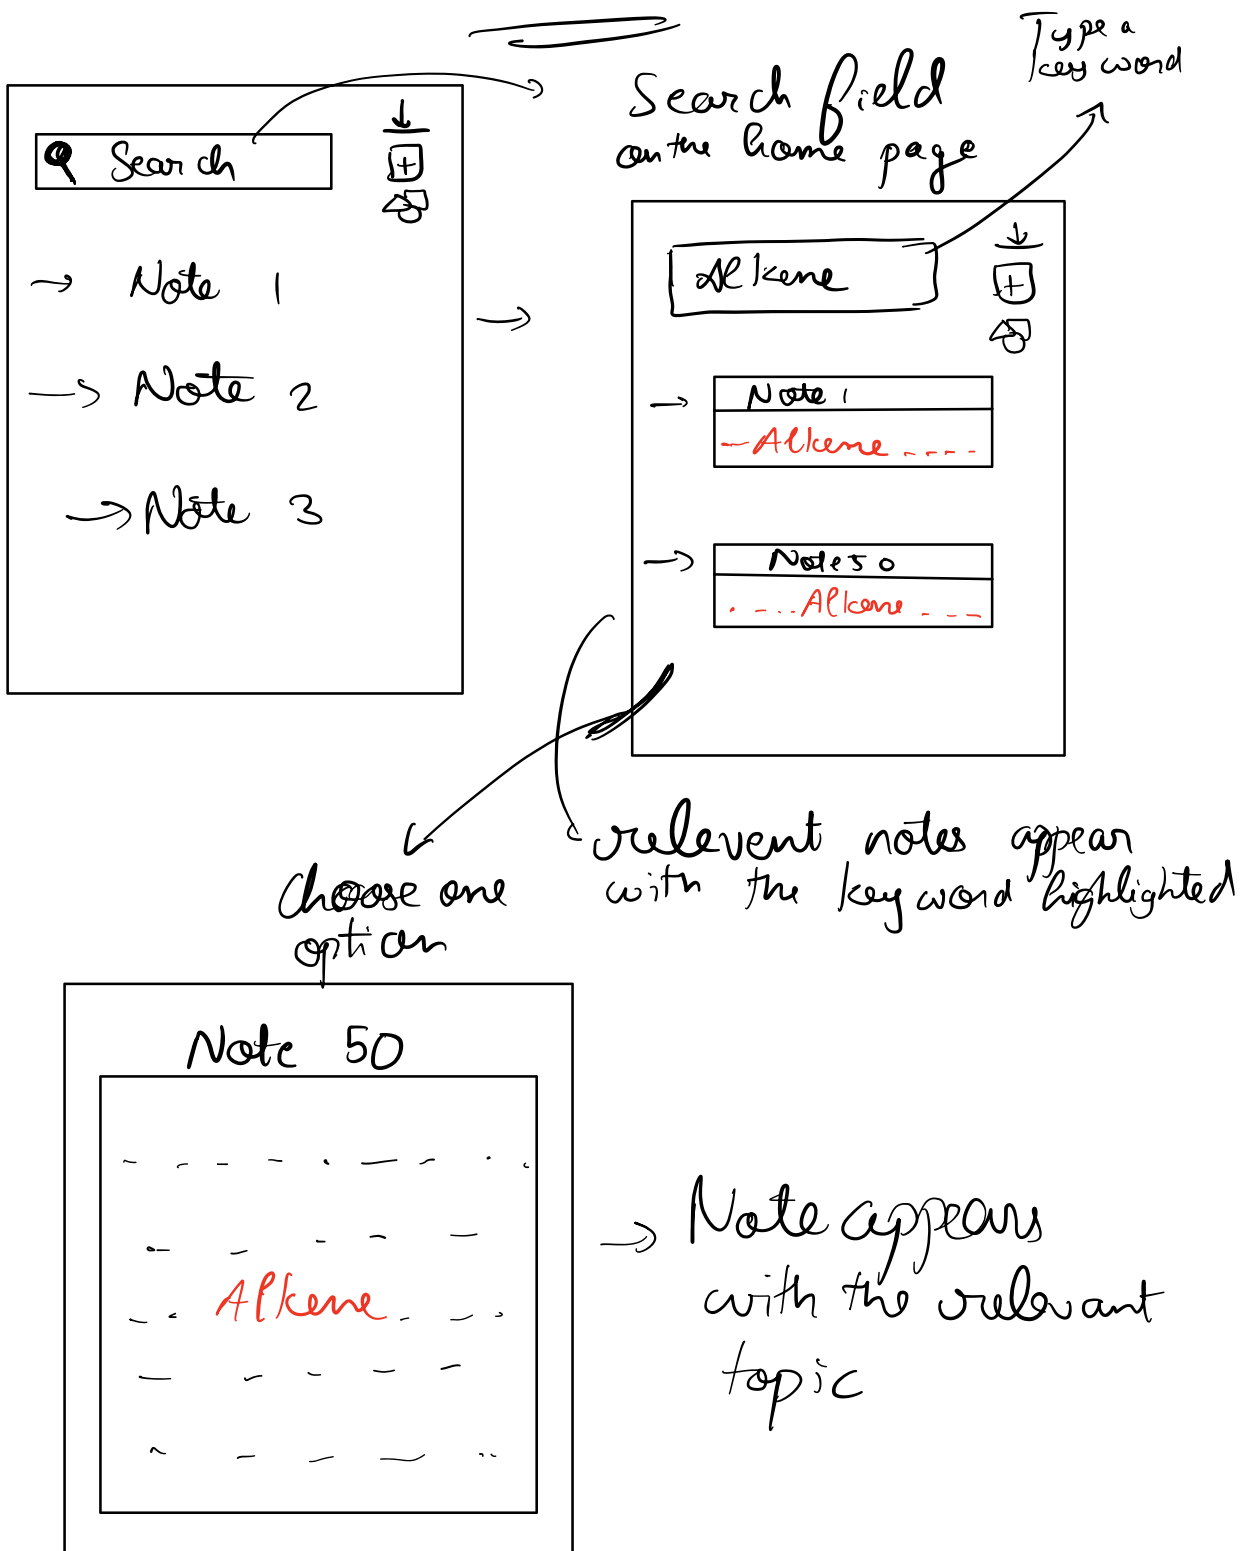 Type a
key word
Search field
on the home page
Search
Note 1
Note 2
Note 3
Alkene
Note 1
Alkene
Note 50
Alkene
relevent notes appear
with the key word highlighted
Choose one
option
Note 50
Alkene
Note appears
with the relevant
topic